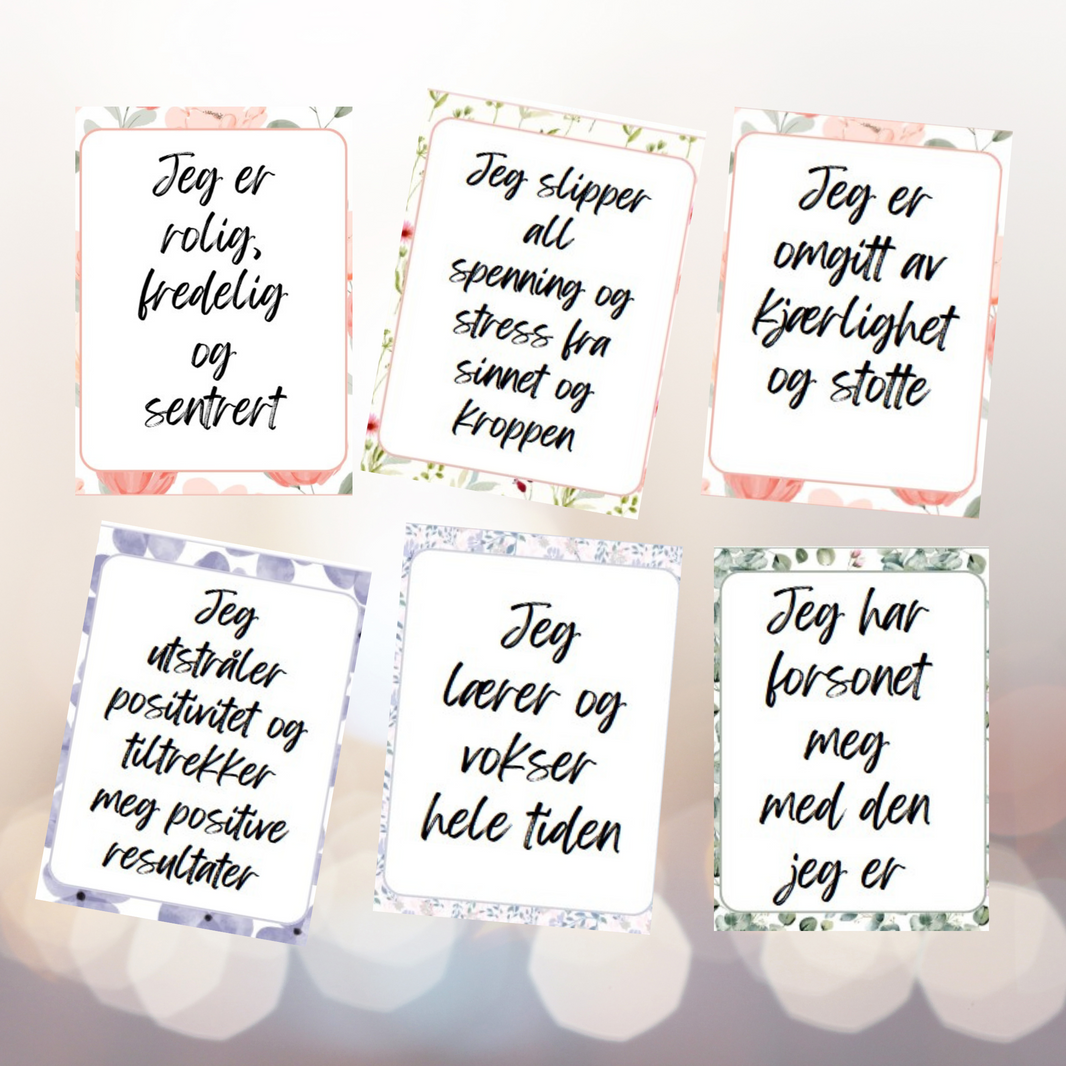 Jeg er
rolig,
fredelig
og
sentrert
Jeg slipper
all
spenning og
stress fra
sinnet og
kroppen
Jeg er
omgitt av
kjærlighet
og støtte
Jeg
utstråler
positivitet og
tiltrekker
meg positive
resultater
Jeg
lærer og
vokser
hele tiden
Jeg har
forsonet
meg
med den
jeg er